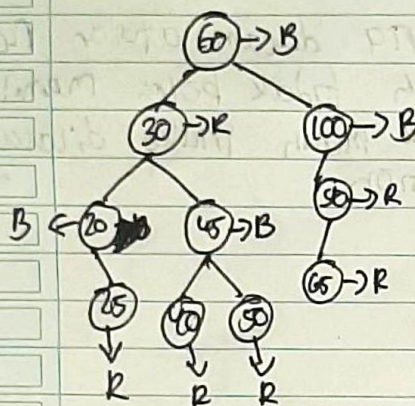 60 → B
30 → R 100 → B
B ← 20 45 → B 90 → R
25 40 50 65 → R
R R R